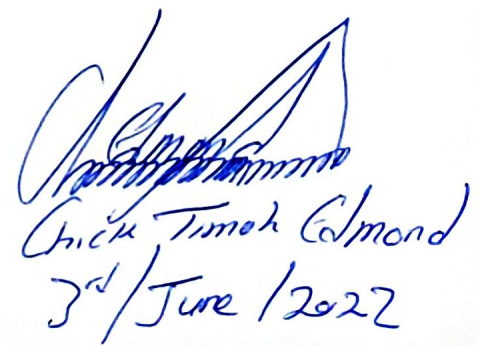 Chick Timah Edmond
3rd/June/2022